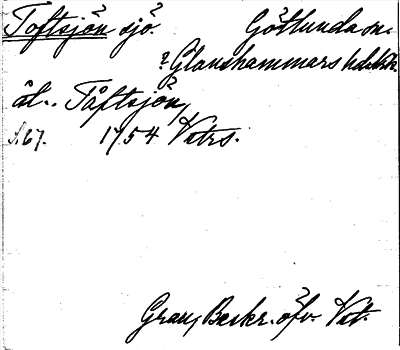 Toftsjön sjö. Götlunda sn.
Glanshammars hd.
äl. Tåftsjön,
s. 67. 1754 Vetrs.
Grau, Beskr. öfv. Vet.